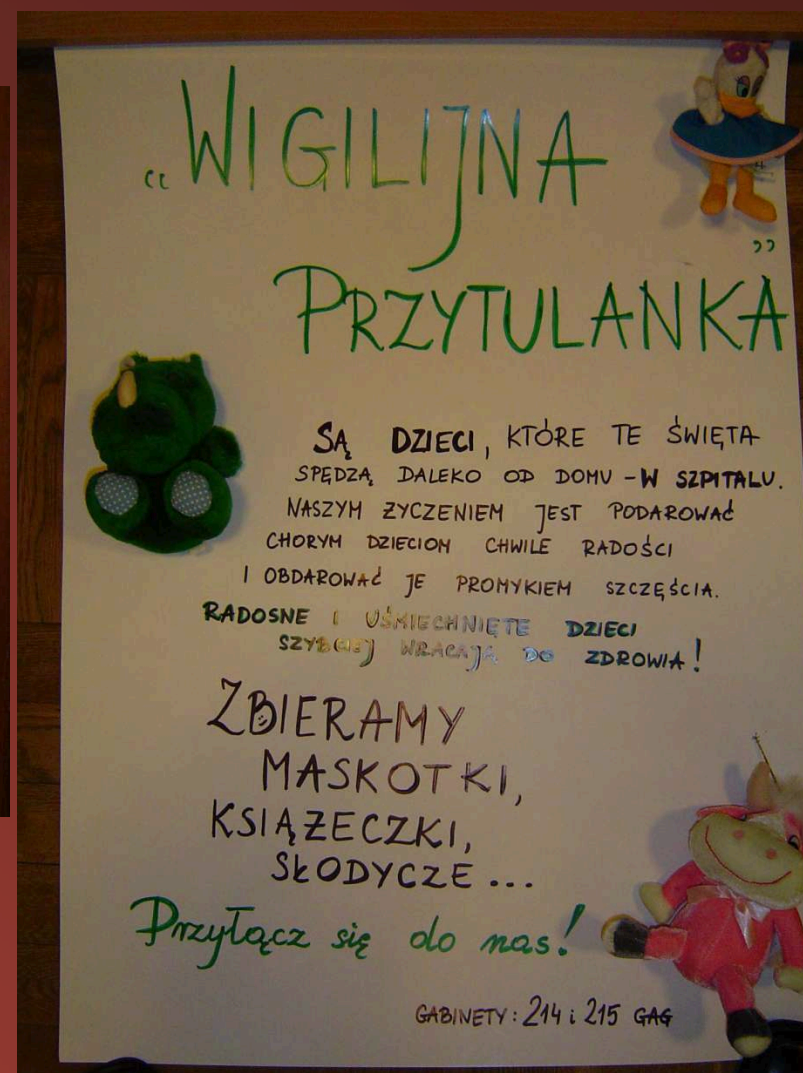 „WIGILIJNA
PRZYTULANKA”
SĄ DZIECI, KTÓRE TE ŚWIĘTA
SPĘDZĄ DALEKO OD DOMU - W SZPITALU.
NASZYM ŻYCZENIEM JEST PODAROWAĆ
CHORYM DZIECIOM CHWILE RADOŚCI
I OBDAROWAĆ JE PROMYKIEM SZCZĘŚCIA.
RADOSNE I UŚMIECHNIĘTE DZIECI
SZYBCIEJ WRACAJĄ DO ZDROWIA!
ZBIERAMY
MASKOTKI,
KSIĄŻECZKI,
SŁODYCZE...
Przyłącz się do nas!
GABINETY: 214 i 215 GAG